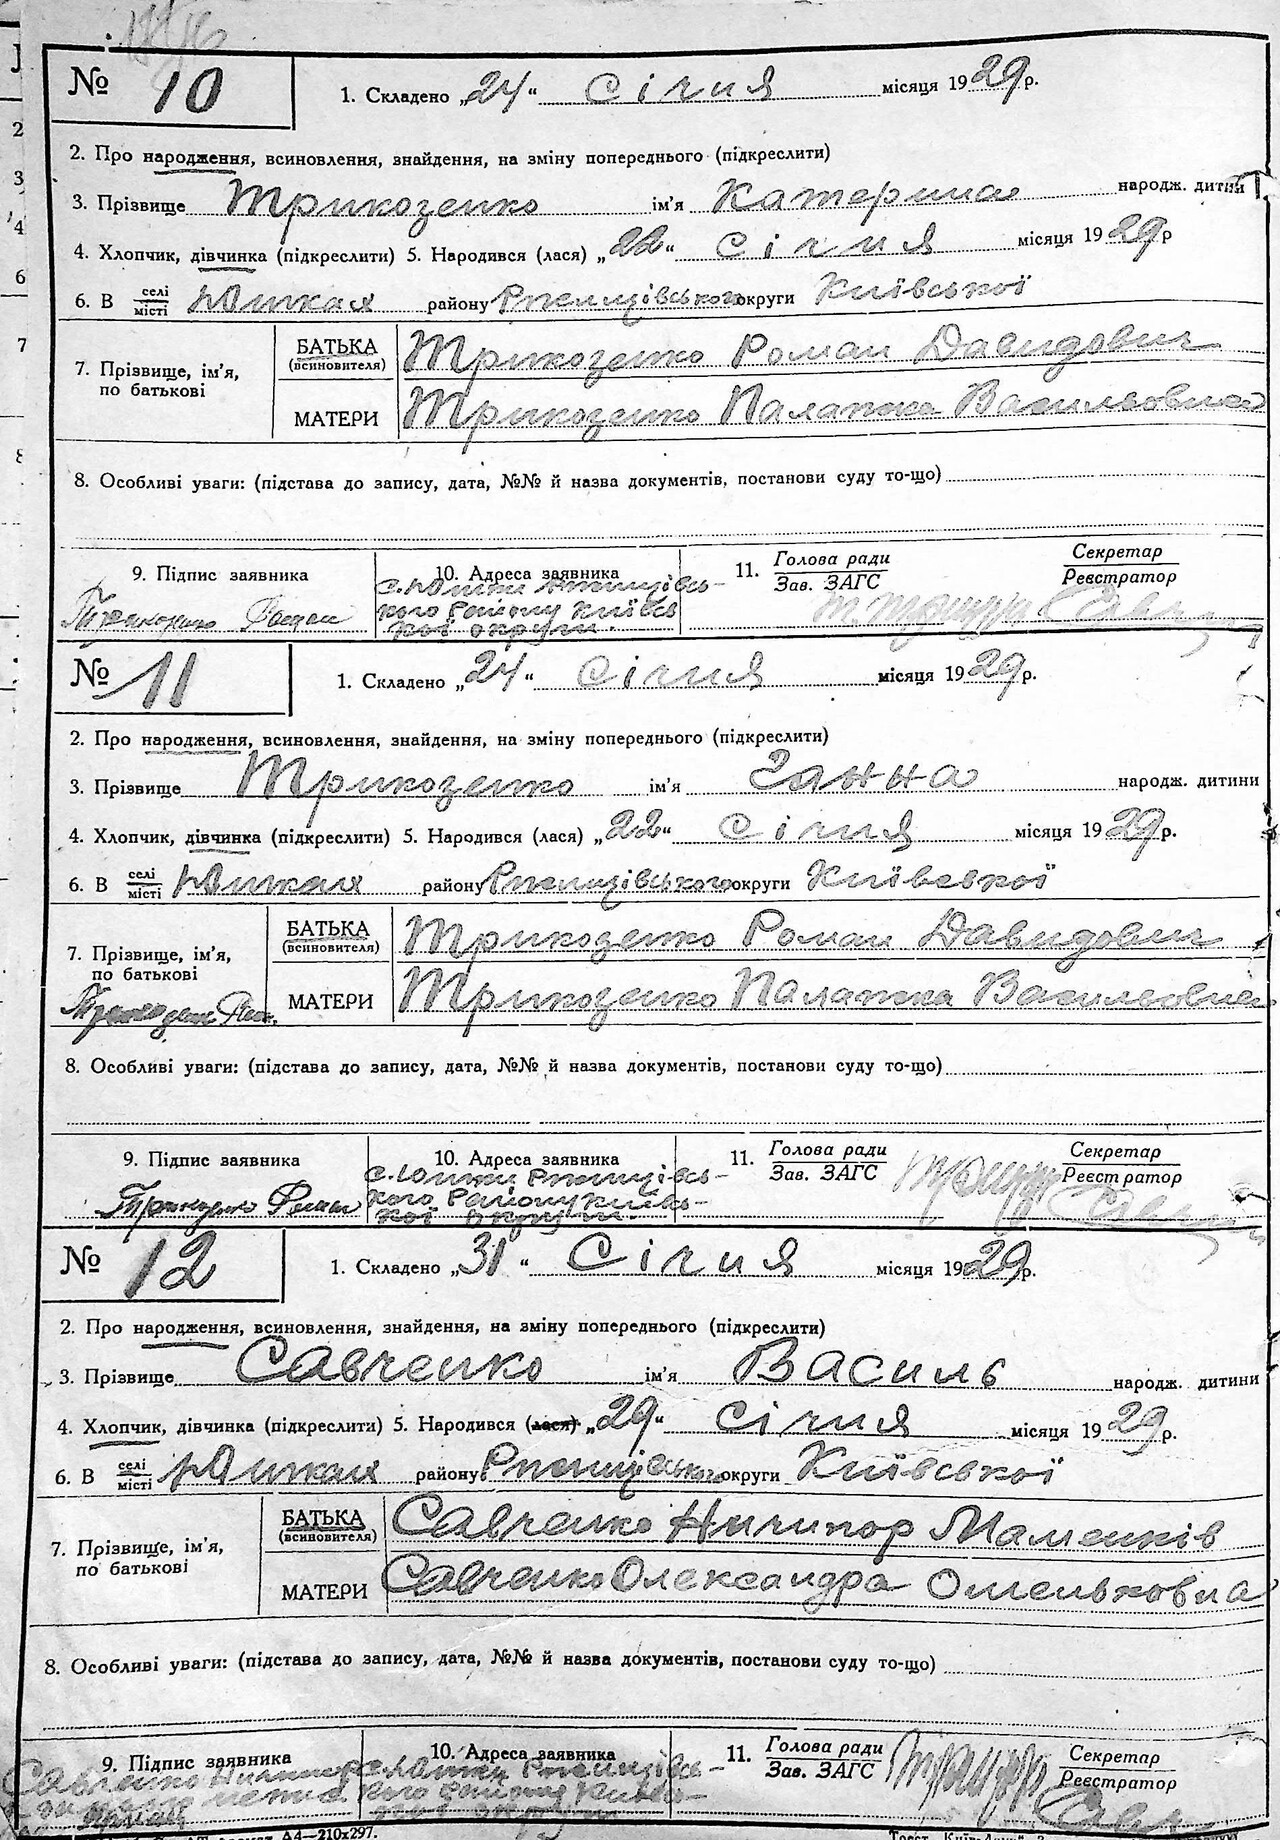 № 10
1. Складено „24“ Січня місяця 1929 р.
2. Про народження, всиновлення, знайдення, на зміну попереднього (підкреслити)
3. Прізвище Трикозенко ім'я Катерина народж. дитини
4. Хлопчик, дівчинка (підкреслити) 5. Народився (лася) „22“ Січня місяця 1929 р
6. В селі місті Юшках району Ржищівського округи Київської
7. Прізвище, ім'я, по батькові
БАТЬКА (всиновителя) Трикозенко Роман Давидович
МАТЕРИ Трикозенко Палажка Васильовна
8. Особливі уваги: (підстава до запису, дата, №№ й назва документів, постанови суду то-що)
9. Підпис заявника 10. Адреса заявника 11. Голова ради Зав. ЗАГС Секретар Реєстратор
Трикозенко Роман
с. Юшки Ржищівсь-
кого Району Київсь
кої округи.
№ 11
1. Складено „24“ Січня місяця 1929 р.
2. Про народження, всиновлення, знайдення, на зміну попереднього (підкреслити)
3. Прізвище Трикозенко ім'я Ганна народж. дитини
4. Хлопчик, дівчинка (підкреслити) 5. Народився (лася) „22“ Січня місяця 1929 р.
6. В селі місті Юшках району Ржищівського округи Київської
7. Прізвище, ім'я, по батькові
БАТЬКА (всиновителя) Трикозенко Роман Давидович
МАТЕРИ Трикозенко Палажка Васильовна
8. Особливі уваги: (підстава до запису, дата, №№ й назва документів, постанови суду то-що)
9. Підпис заявника 10. Адреса заявника 11. Голова ради Зав. ЗАГС Секретар Реєстратор
Трикозенко Роман
с. Юшки Ржищівсь-
кого Району Київсь-
кої округи.
№ 12
1. Складено „31“ Січня місяця 1929 р.
2. Про народження, всиновлення, знайдення, на зміну попереднього (підкреслити)
3. Прізвище Савченко ім'я Василь народж. дитини
4. Хлопчик, дівчинка (підкреслити) 5. Народився (лася) „29“ Січня місяця 1929 р.
6. В селі місті Юшках району Ржищівського округи Київської
7. Прізвище, ім'я, по батькові
БАТЬКА (всиновителя) Савченко Ничипор
МАТЕРИ Савченко Олександра Омельковна
8. Особливі уваги: (підстава до запису, дата, №№ й назва документів, постанови суду то-що)
9. Підпис заявника 10. Адреса заявника 11. Голова ради Зав. ЗАГС Секретар Реєстратор
Савченко Ничипор
с. Юшки Ржищівсь-
кого Району Київсь-
кої округи
А4—210х297.